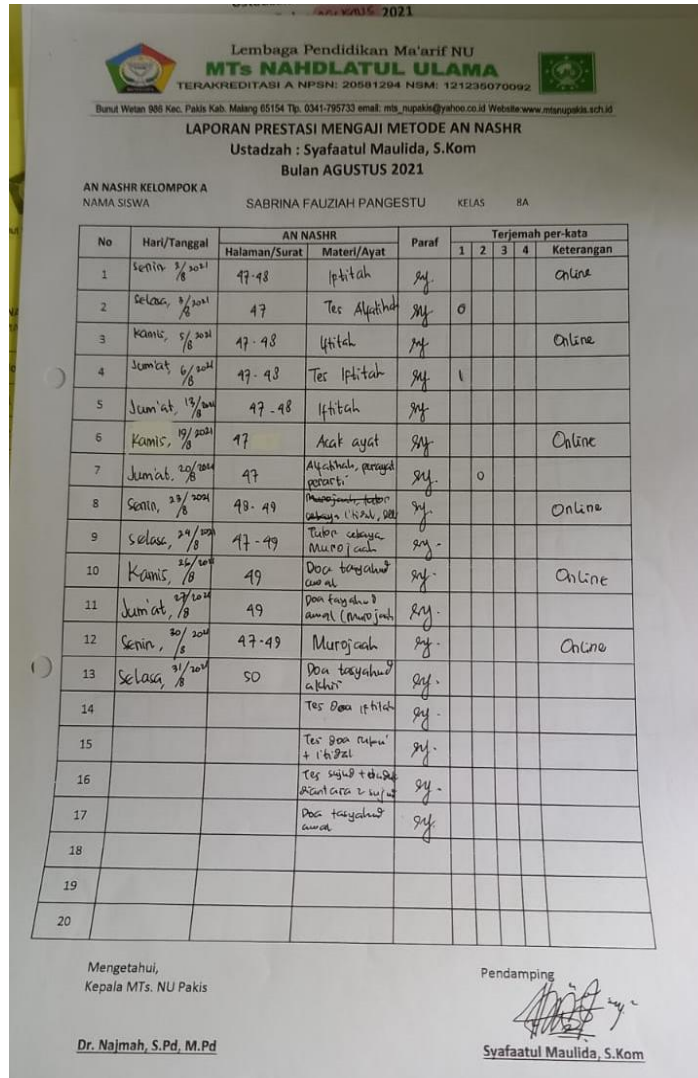 2021
Lembaga Pendidikan Ma'arif NU
MTs NAHDLATUL ULAMA
TERAKREDITASI A NPSN: 20581294 NSM: 121235070092
Bunut Wetan 986 Kec. Pakis Kab. Malang 65154 Tlp. 0341-795733 email: mts_nupakis@yahoo.co.id Website:www.mtsnupakis.sch.id
LAPORAN PRESTASI MENGAJI METODE AN NASHR
Ustadzah : Syafaatul Maulida, S.Kom
Bulan AGUSTUS 2021
AN NASHR KELOMPOK A
NAMA SISWA SABRINA FAUZIAH PANGESTU KELAS 8A
No Hari/Tanggal AN NASHR Paraf Terjemah per-kata
Halaman/Surat Materi/Ayat 1 2 3 4 Keterangan
1 Senin 2/8 2021 47-48 Iftitah Online
2 Selasa, 3/8 2021 47 Tes Alfatihah 0
3 Kamis, 5/8 2021 47-48 Iftitah Online
4 Jum'at 6/8 2021 47-48 Tes Iftitah 1
5 Jum'at, 13/8 2021 47-48 Iftitah
6 Kamis, 19/8 2021 47 Acak ayat Online
7 Jum'at, 20/8 2021 47 Alfatihah, perayat
perarti 0
8 Senin, 23/8 2021 48-49 Murojaah, tutor
sebaya I'tidal, Online
9 Selasa, 24/8 2021 47-49 Tutor sebaya
Murojaah
10 Kamis, 26/8 2021 49 Doa tasyahud
awal Online
11 Jum'at, 27/8 2021 49 Doa tasyahud
awal (murojaah
12 Senin, 30/8 2021 47-49 Murojaah Online
13 Selasa, 31/8 2021 50 Doa tasyahud
akhir
14 Tes Doa iftitah
15 Tes Doa ruku'
+ i'tidal
16 Tes sujud + duduk
diantara 2 sujud
17 Doa tasyahud
awal
18
19
20
Mengetahui,
Kepala MTs. NU Pakis
Pendamping
Dr. Najmah, S.Pd, M.Pd
Syafaatul Maulida, S.Kom